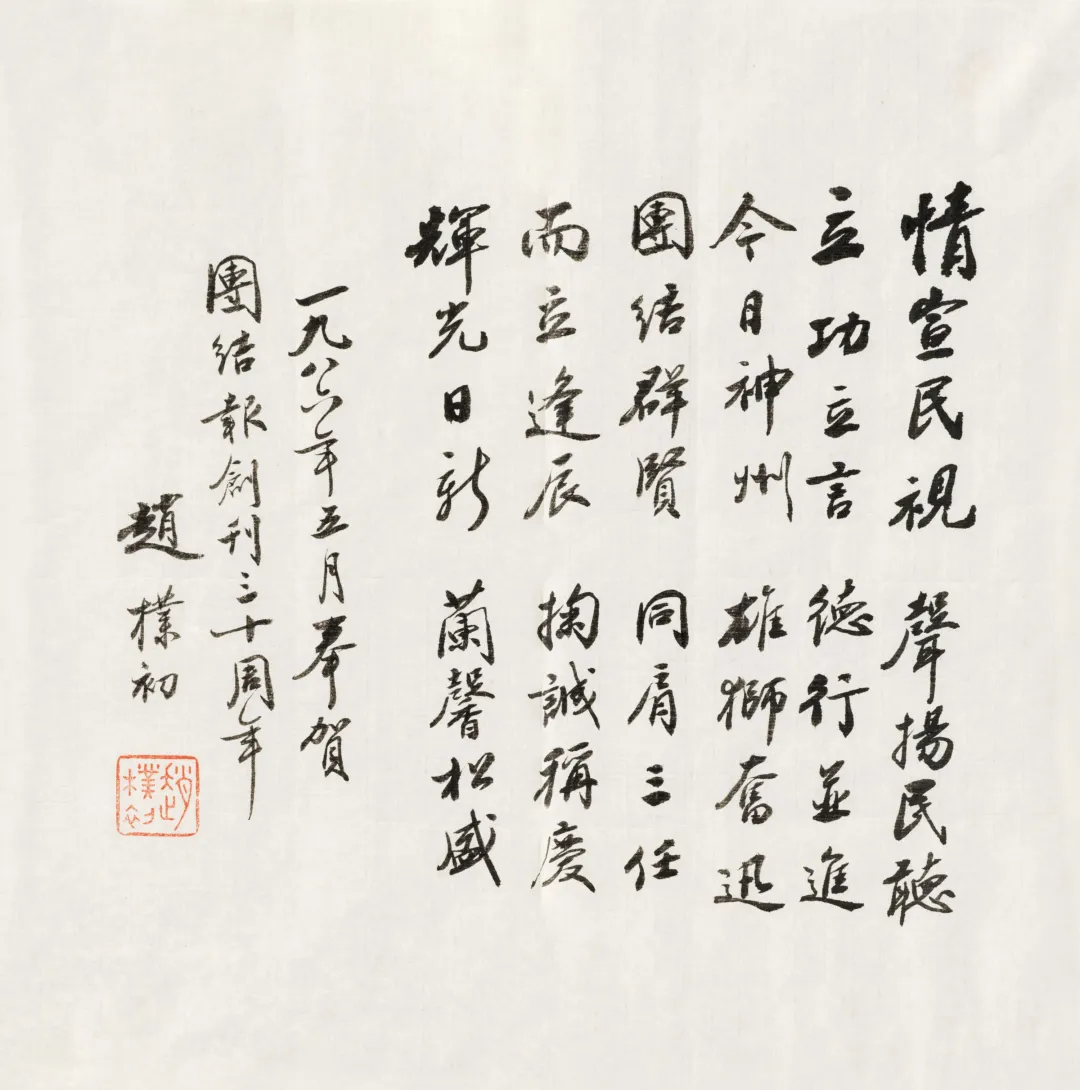 情宣民視 聲揚民聽
立功立言 德行並進
今日神州 雄獅奮迅
團結群賢 同肩三任
而立逢辰 掬誠稱慶
輝光日新 蘭馨松盛
一九八六年五月奉賀
團結報創刊三十周年
趙樸初
趙樸初